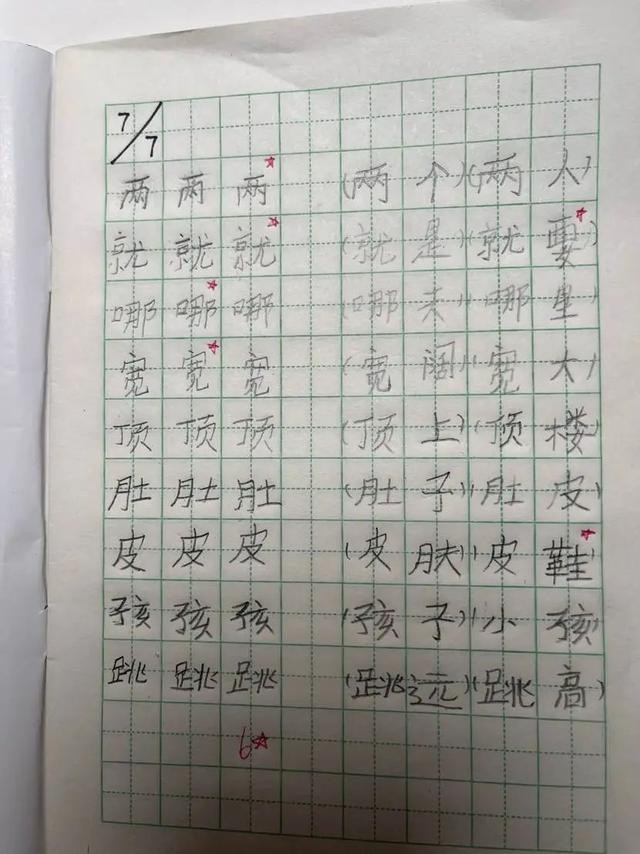 7/7
两 两 两 (两 个)(两 人)
就 就 就 (就 是)(就 要)
哪 哪 哪 (哪 来)(哪 里)
宽 宽 宽 (宽 阔)(宽 大)
顶 顶 顶 (顶 上)(顶 楼)
肚 肚 肚 (肚 子)(肚 皮)
皮 皮 皮 (皮 肤)(皮 鞋)
孩 孩 孩 (孩 子)(小 孩)
跳 跳 跳 (跳 远)(跳 高)
6☆